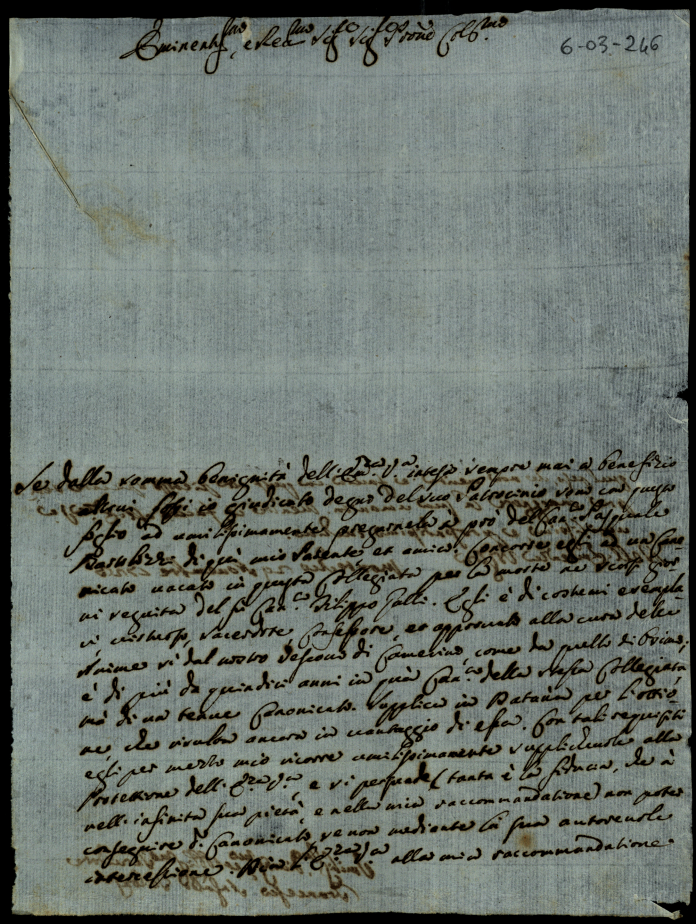 Eminent.mo, e Rev.mo Sig.re Sig.re Prône Col.mo
6-03-246
Se dalla somma benignità dell'Em.za V.a intesa sempre mai a benefizio
altrui fossi io giudicato degno del suo Patrocinio vom con questo
foglio ad umilissimamente pregarnela a prò del Can.co Pasquale
di già mio Parente et amico. Concorre egli ad un Cano-
nicato vacato in questa Collegiata per la morte ne' scorsi gior-
ni seguita del fù Can.co Filippo Egli è di costumi exempla-
ri, virtuoso, sacerdote Confessore, et approvato alla cura delle
Anime sì dal nostro Vescovo di Camerino, come da quello di
è di più da quindici anni in quà Can.co della stessa Collegiata
mà di un tenue Canonicato. Supplica in Dataria per l'ottio-
ne, che risulta ancora in vantaggio di essa. Con tali requisiti
egli per mezzo mio ricorre umilissimamente supplichevole alla
Protezzione dell'Em.za V.a, e si persuade (tanta è la fiducia, che à
nell'infinita sua pietà, e nella mia raccommandatione) non poter
conseguire il Canonicato, se non mediante la sua autorevole
intercessione alla mia raccommandatione